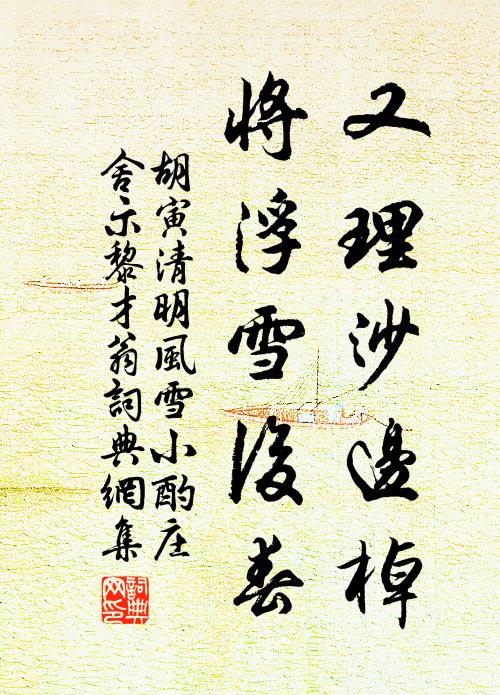 又理沙邊棹
將浮雪後春
胡寅清明風雪小酌庄
舍示黎才翁詞典網集
詞典
网印